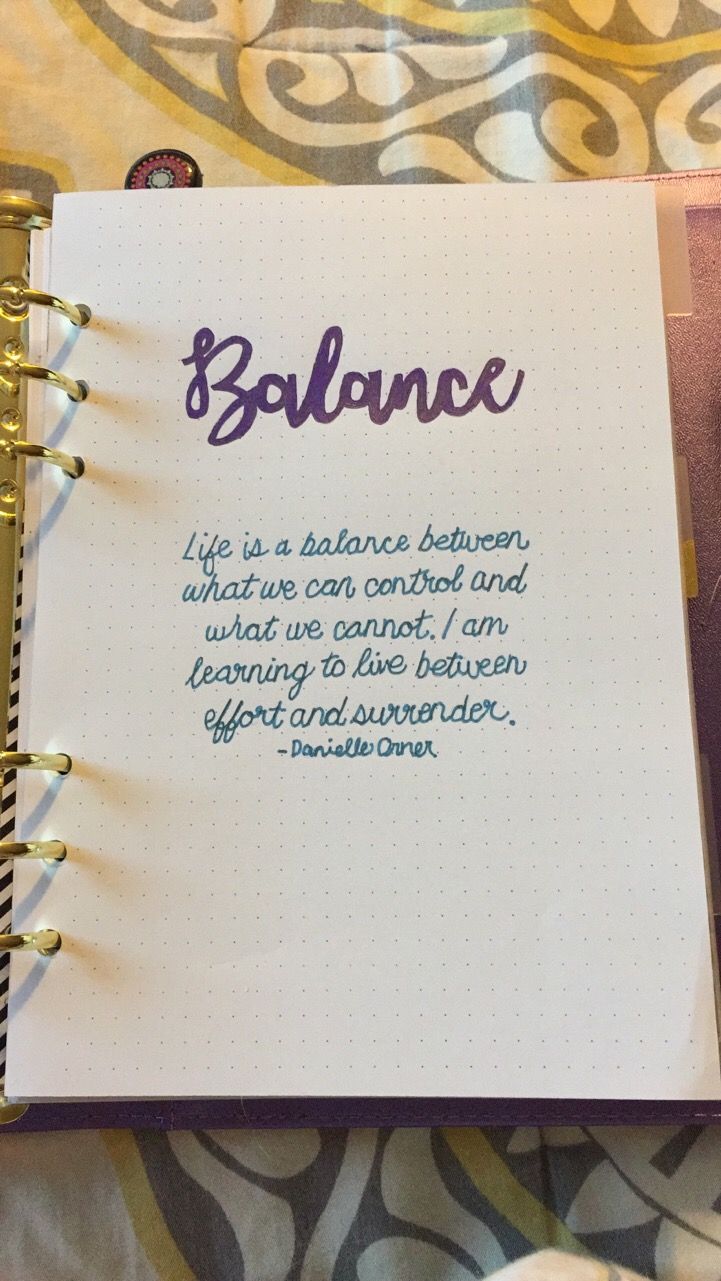 Balance
Life is a balance between
what we can control and
what we cannot. I am
learning to live between
effort and surrender.
-Danielle Orner